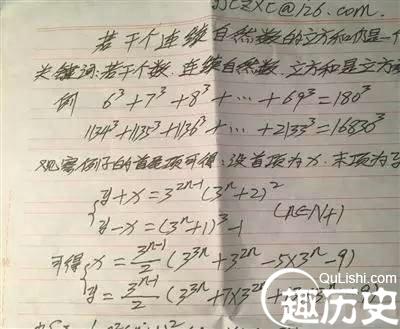 JJCZXC@126.com.
若干个连续自然数的立方和仍是一个
关键词:若干个数.连续自然数.立方和是立方
例 6³+7³+8³+…+69³=180³
1134³+1135³+1136³+…+2133³=16830³
观察例子的首末项可得:设首项为x.末项为y
{y+x=3^{2n-1}(3^n+2)²
y-x=(3^n+1)³-1 (n∈N+)
可得{x=3^{n-1}/2(3^{3n}+3^{2n}-5×3^n-9)
y=3^{n-1}/2(3^{3n}+7×3^{2n}+
QuLiShi.com
趣历史